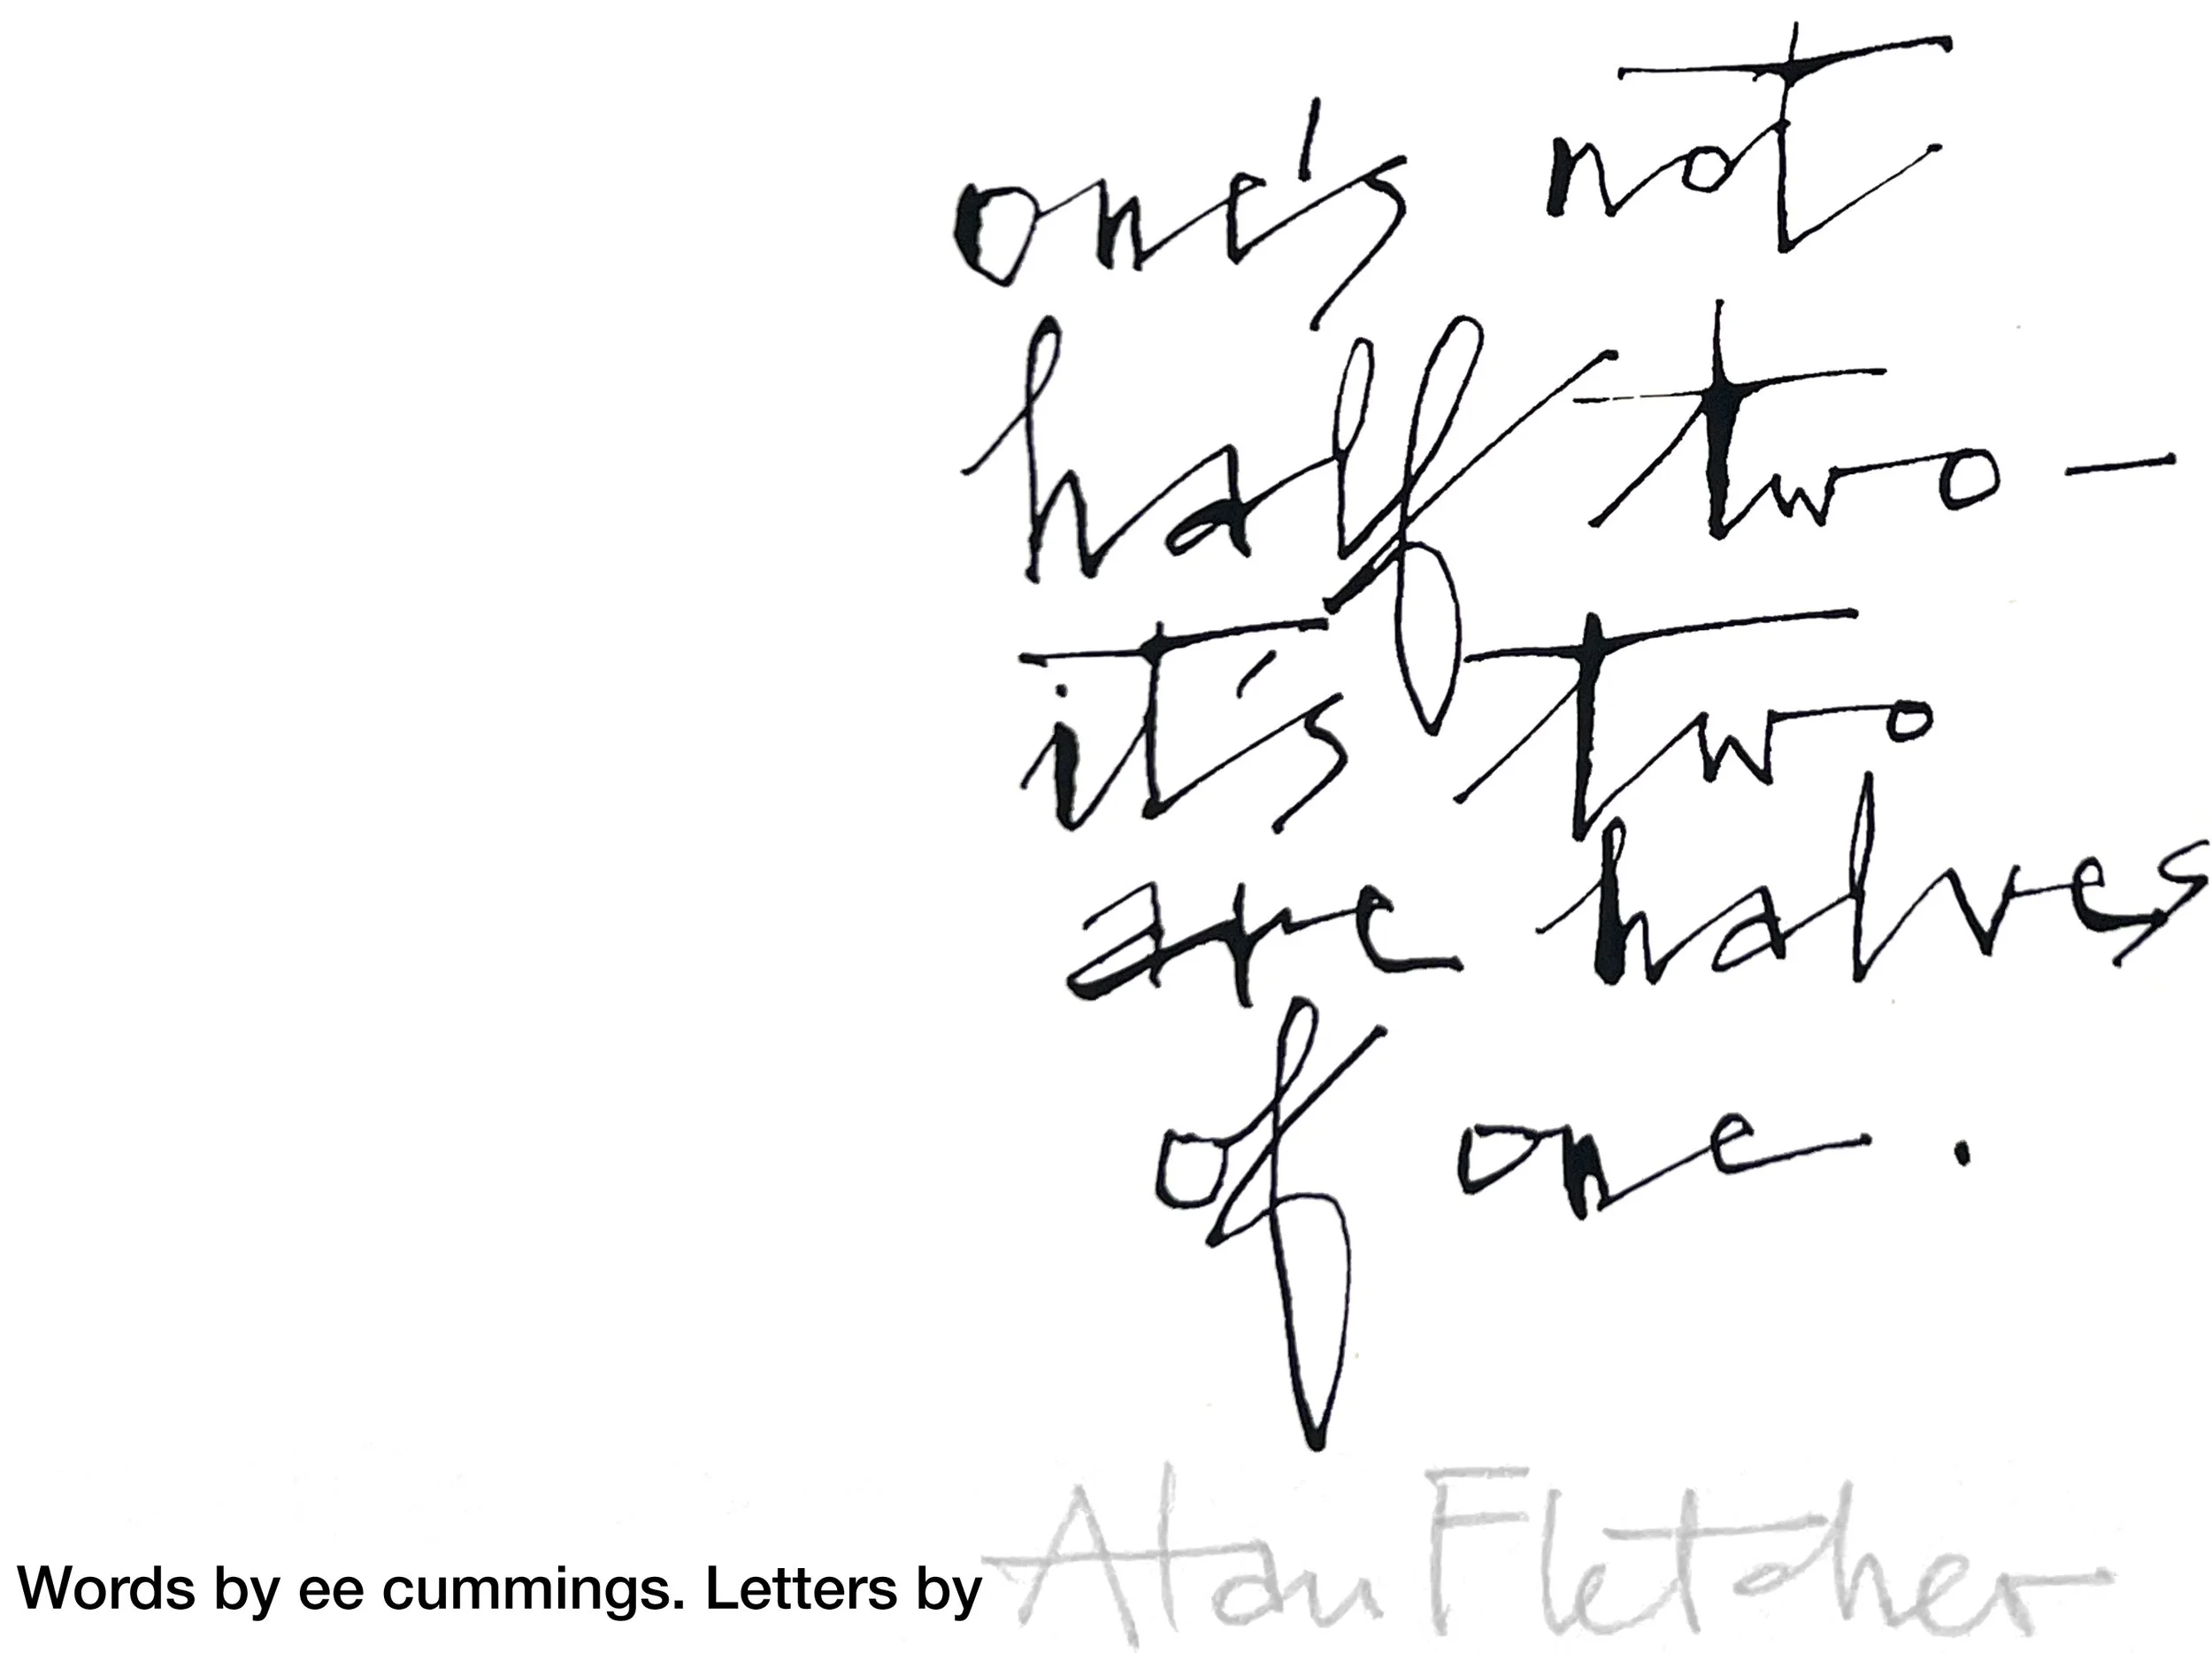 one's not
half two -
it's two
are halves
of one.
Words by ee cummings. Letters by Alan Fletcher